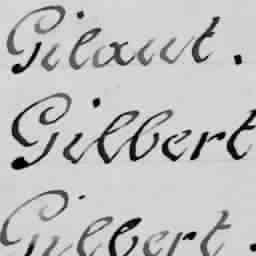 Gilaut.
Gilbert
Gilbert.